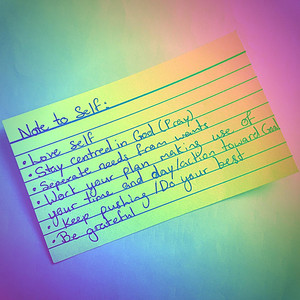 Note to Self:
• Love self
• Stay centred in God (Pray)
• Seperate needs from wants
• Work your plan making use of
your time and day/action toward Goal
• Keep pushing /Do your best
• Be grateful